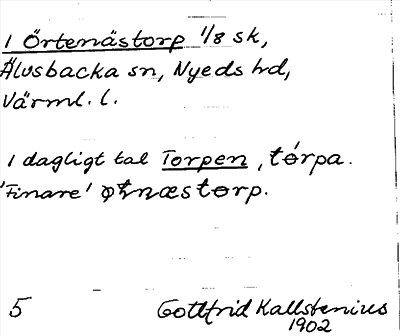 1 Örtenästorp 1/8 sk,
Älvsbacka sn, Nyeds hd,
Värml. l.
I dagligt tal Torpen, tórpa.
'Finare' øtnæstorp.
5
Gottfrid Kallstenius
1902